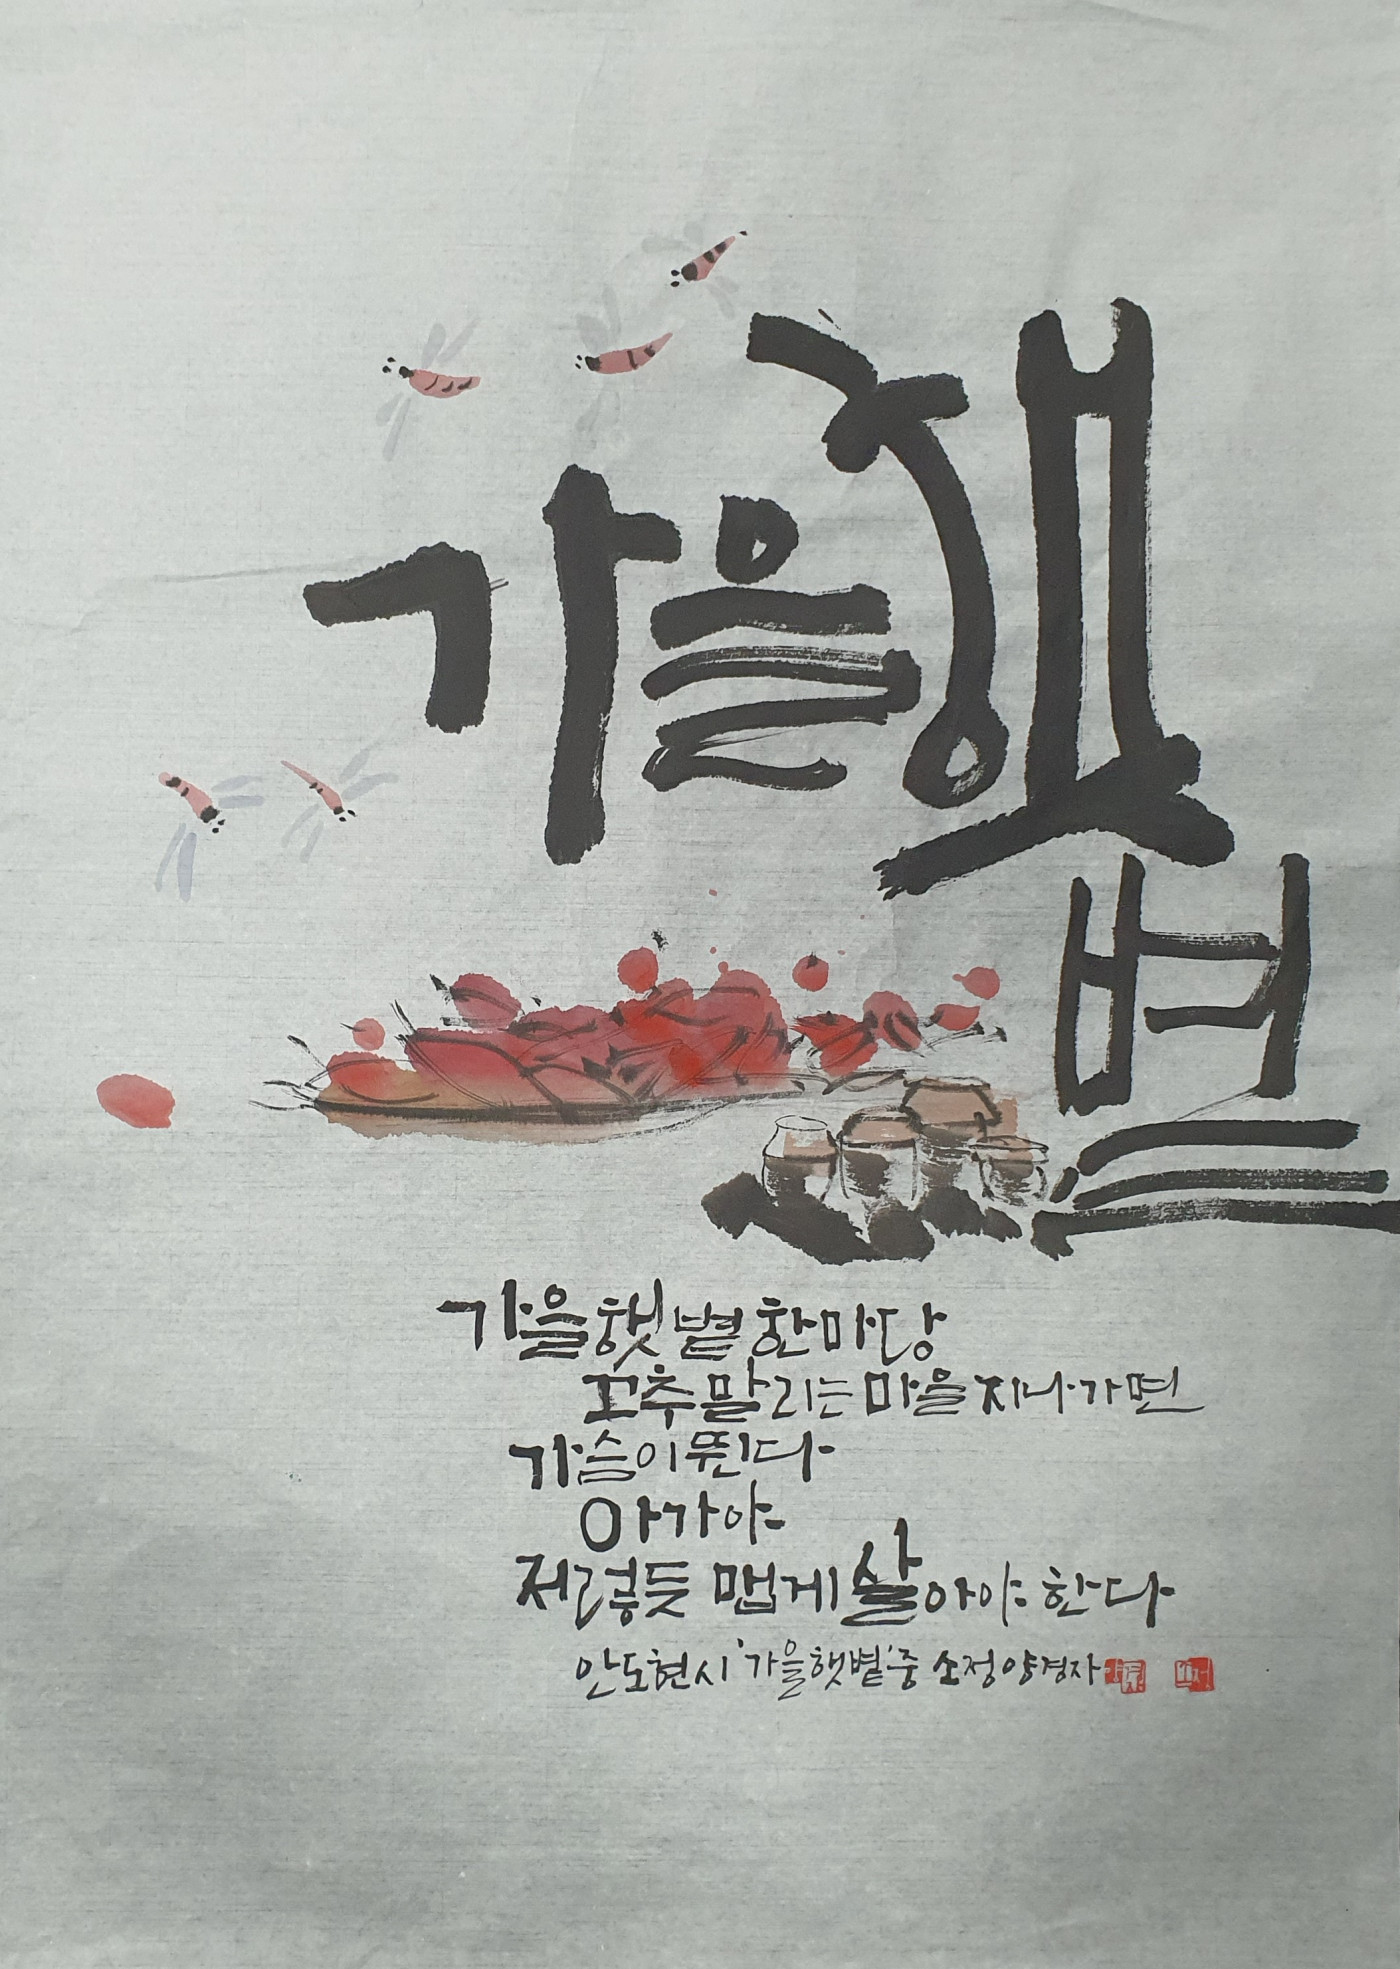 가을
햇
볕
가을햇볕한마당
고추말리는마을지나가면
가슴이뛴다
아가야
저렇듯 맵게 살아야 한다
안도현시 '가을햇볕'중 소정양경자